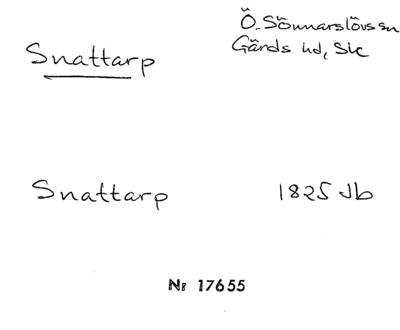 Snattarp
Ö. Sönnarslövs sn
Gärds hd, Sk
Snattarp 1825 Jb
Nr 17655